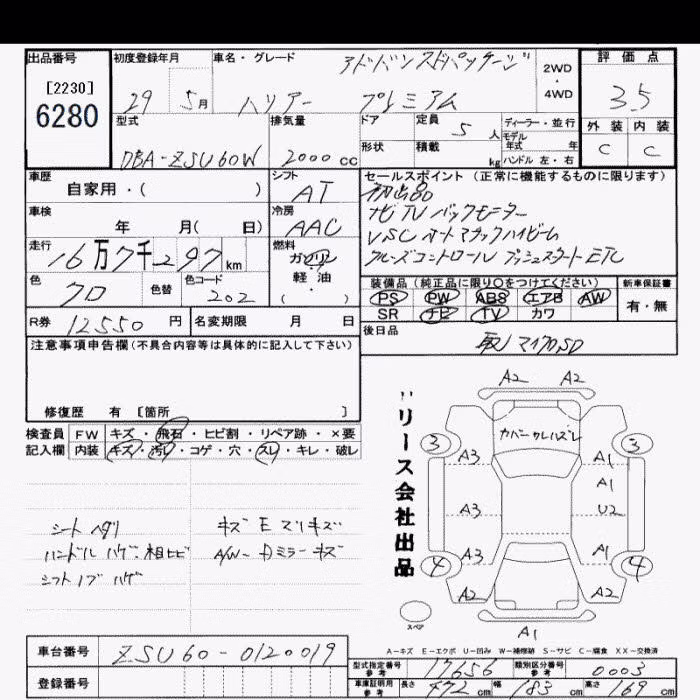 出品番号
[2230]
6280
初度登録年月
29 5月
車名・グレード
アドバンスドパッケージ
ハリアー プレミアム
2WD
・
4WD
評価点
3.5
外装 内装
C C
型式
DBA-ZSU60W
排気量
2000cc
ドア
形状
定員 5人
積載 kg
ディーラー・並行
モデル年式 年
ハンドル 左・右
車歴
自家用・( )
シフト
AT
車検
年 月( 日)
冷房
AAC
走行
16万7千297km
燃料
ガソリン
・
軽油
( ・ )
色
クロ
色替
色コード
202
セールスポイント(正常に機能するものに限ります)
初出品
ナビTVバックモニター
VSC オートマチックハイビーム
クルーズコントロール プッシュスタート ETC
装備品(純正品に限り○をつけてください)
PS PW ABS エアB AW
SR ナビ TV カワ
新車保証書
有・無
R券 12550円
名変期限 月 日
後日品
取 マイクロSD
注意事項申告欄(不具合内容等は具体的に記入して下さい)
修復歴 有 [箇所 ]
検査員記入欄
FW キズ・飛石・ヒビ割・リペア跡・×要
内装 キズ・汚レ・コゲ・穴・スレ・キレ・破レ
シート ヘタリ
ハンドル ハゲ・粗ヒビ
シフトノブ ハゲ
キズ E スリキズ
A/W・Dミラー キズ
リース会社出品
A2 A2
カバー クレハズレ
3 3
A3 A1
A1
A3 U2
A3 A1
4 4
A2 A2
A1
スペア
A-キズ E-エクボ U-凹み W-補修跡 S-サビ C-腐食 XX-交換済
車台番号 ZSU60-0120019
登録番号
型式指定番号 参考 17656
類別区分番号 参考 0003
車庫証明用 参考 長さ 472cm 幅 183cm 高さ 169cm